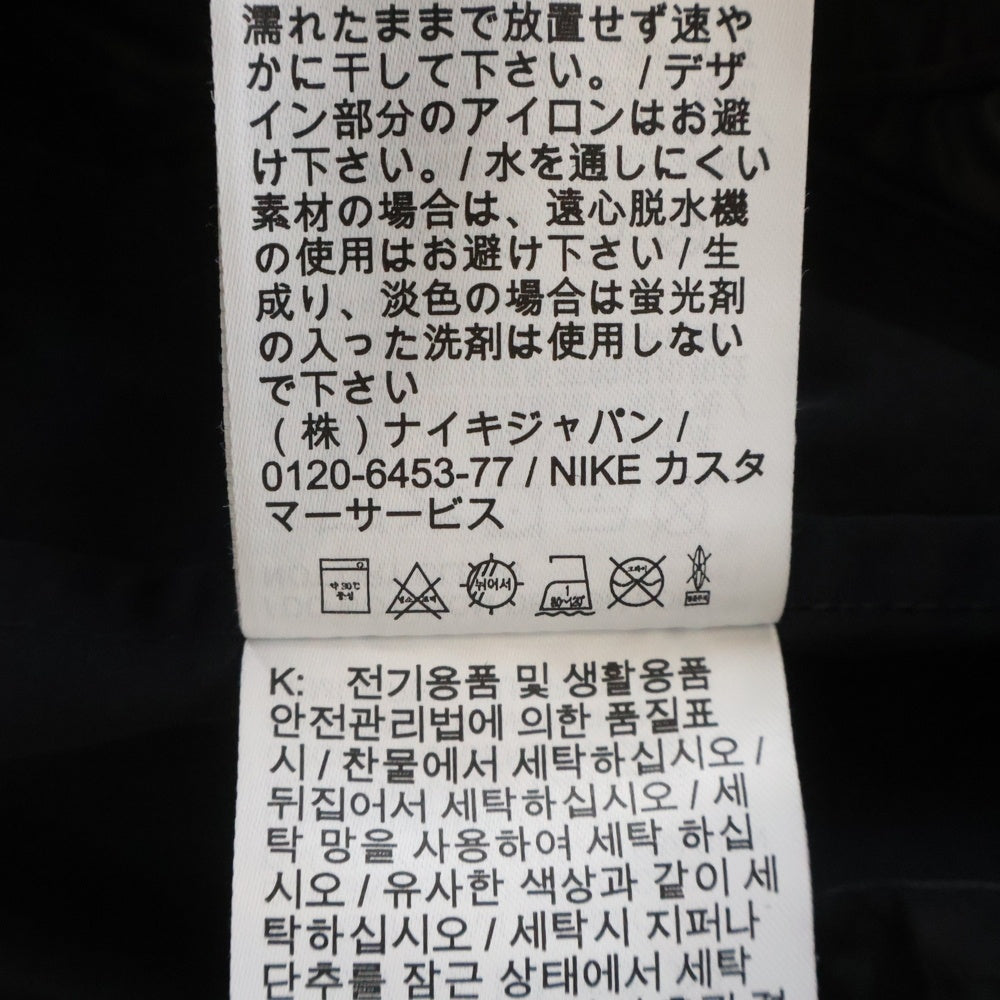 濡れたままで放置せず速や
かに干して下さい。 / デザ
イン部分のアイロンはお避
け下さい。/ 水を通しにくい
素材の場合は、遠心脱水機
の使用はお避け下さい / 生
成り、淡色の場合は蛍光剤
の入った洗剤は使用しない
で下さい
( 株 ) ナイキジャパン /
0120-6453-77 / NIKE カスタ
マーサービス
약 30℃ 뉘어서 1
중성 80~120
K: 전기용품 및 생활용품
안전관리법에 의한 품질표
시 / 찬물에서 세탁하십시오 /
뒤집어서 세탁하십시오 / 세
탁 망을 사용하여 세탁 하십
시오 / 유사한 색상과 같이 세
탁하십시오 / 세탁시 지퍼나
단추를 잠근 상태에서 세탁